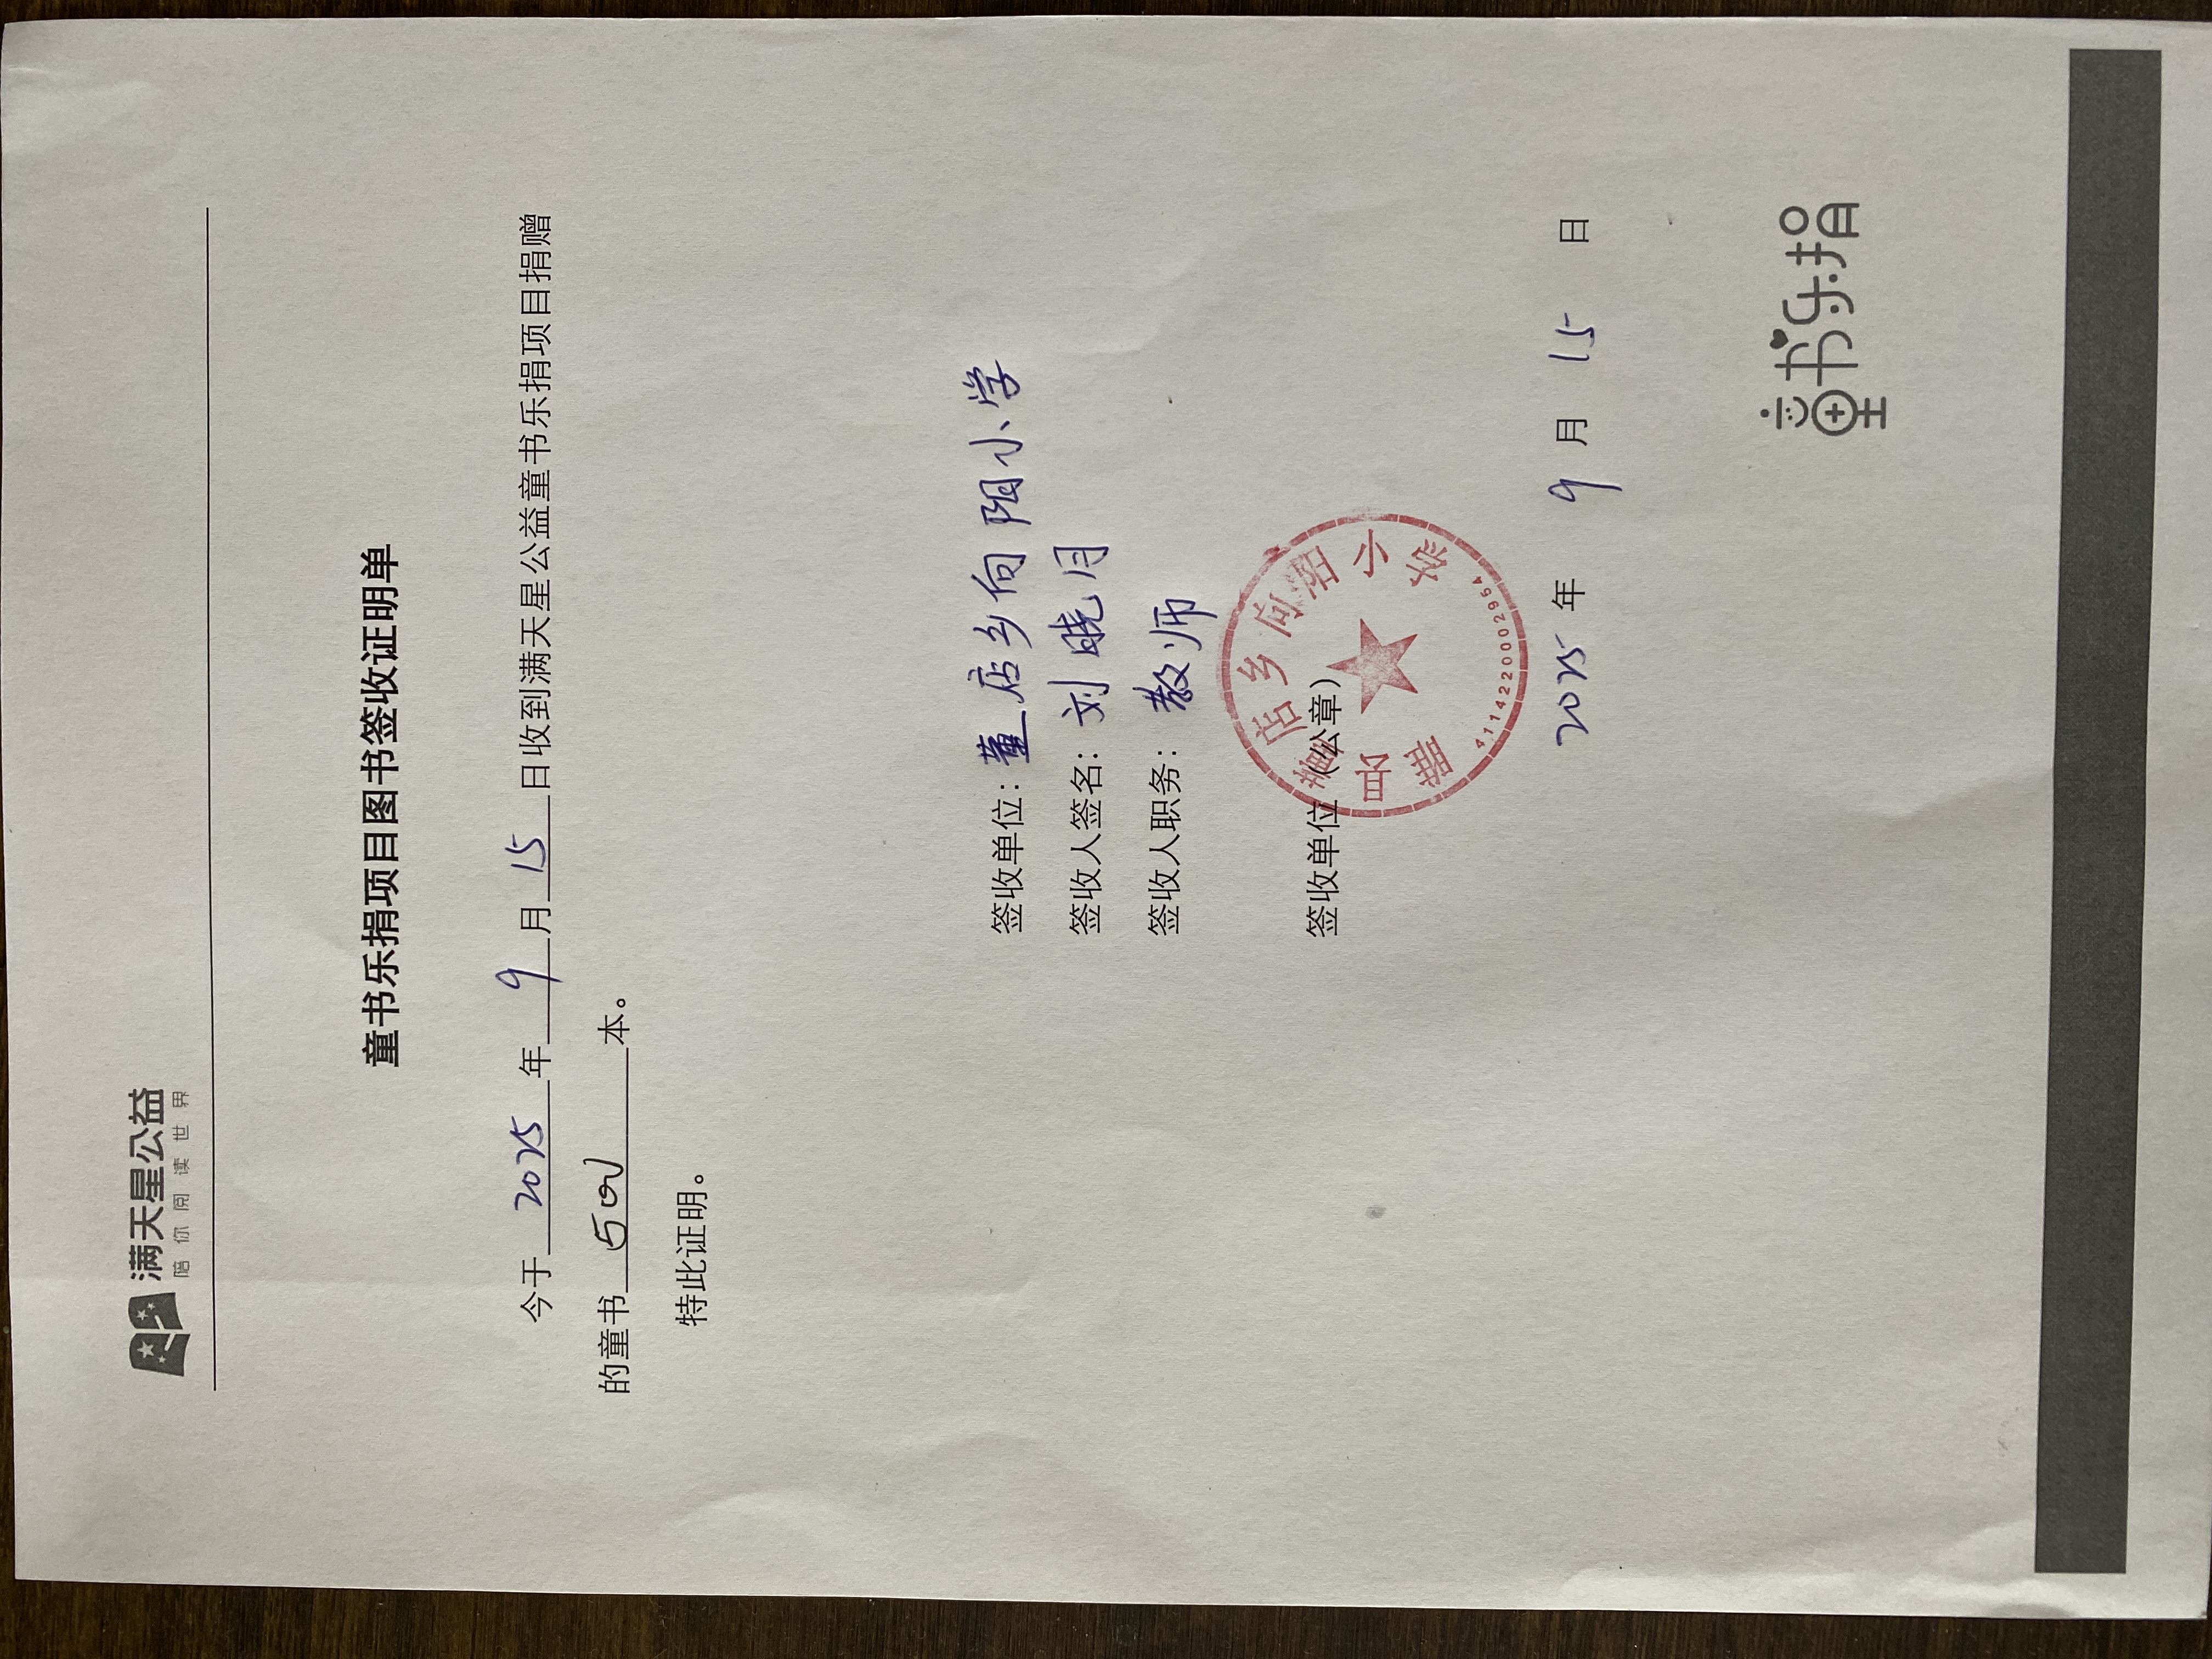 满天星公益
陪你阅读世界
童书乐捐项目图书签收证明单
今于 2025 年 9 月 15 日收到满天星公益童书乐捐项目捐赠
的童书 500 本。
特此证明。
签收单位：董店乡向阳小学
签收人签名：刘晓月
签收人职务：教师
签收单位（公章）
睢县董店乡向阳小学
4114220002954
2025 年 9 月 15 日
童书乐捐